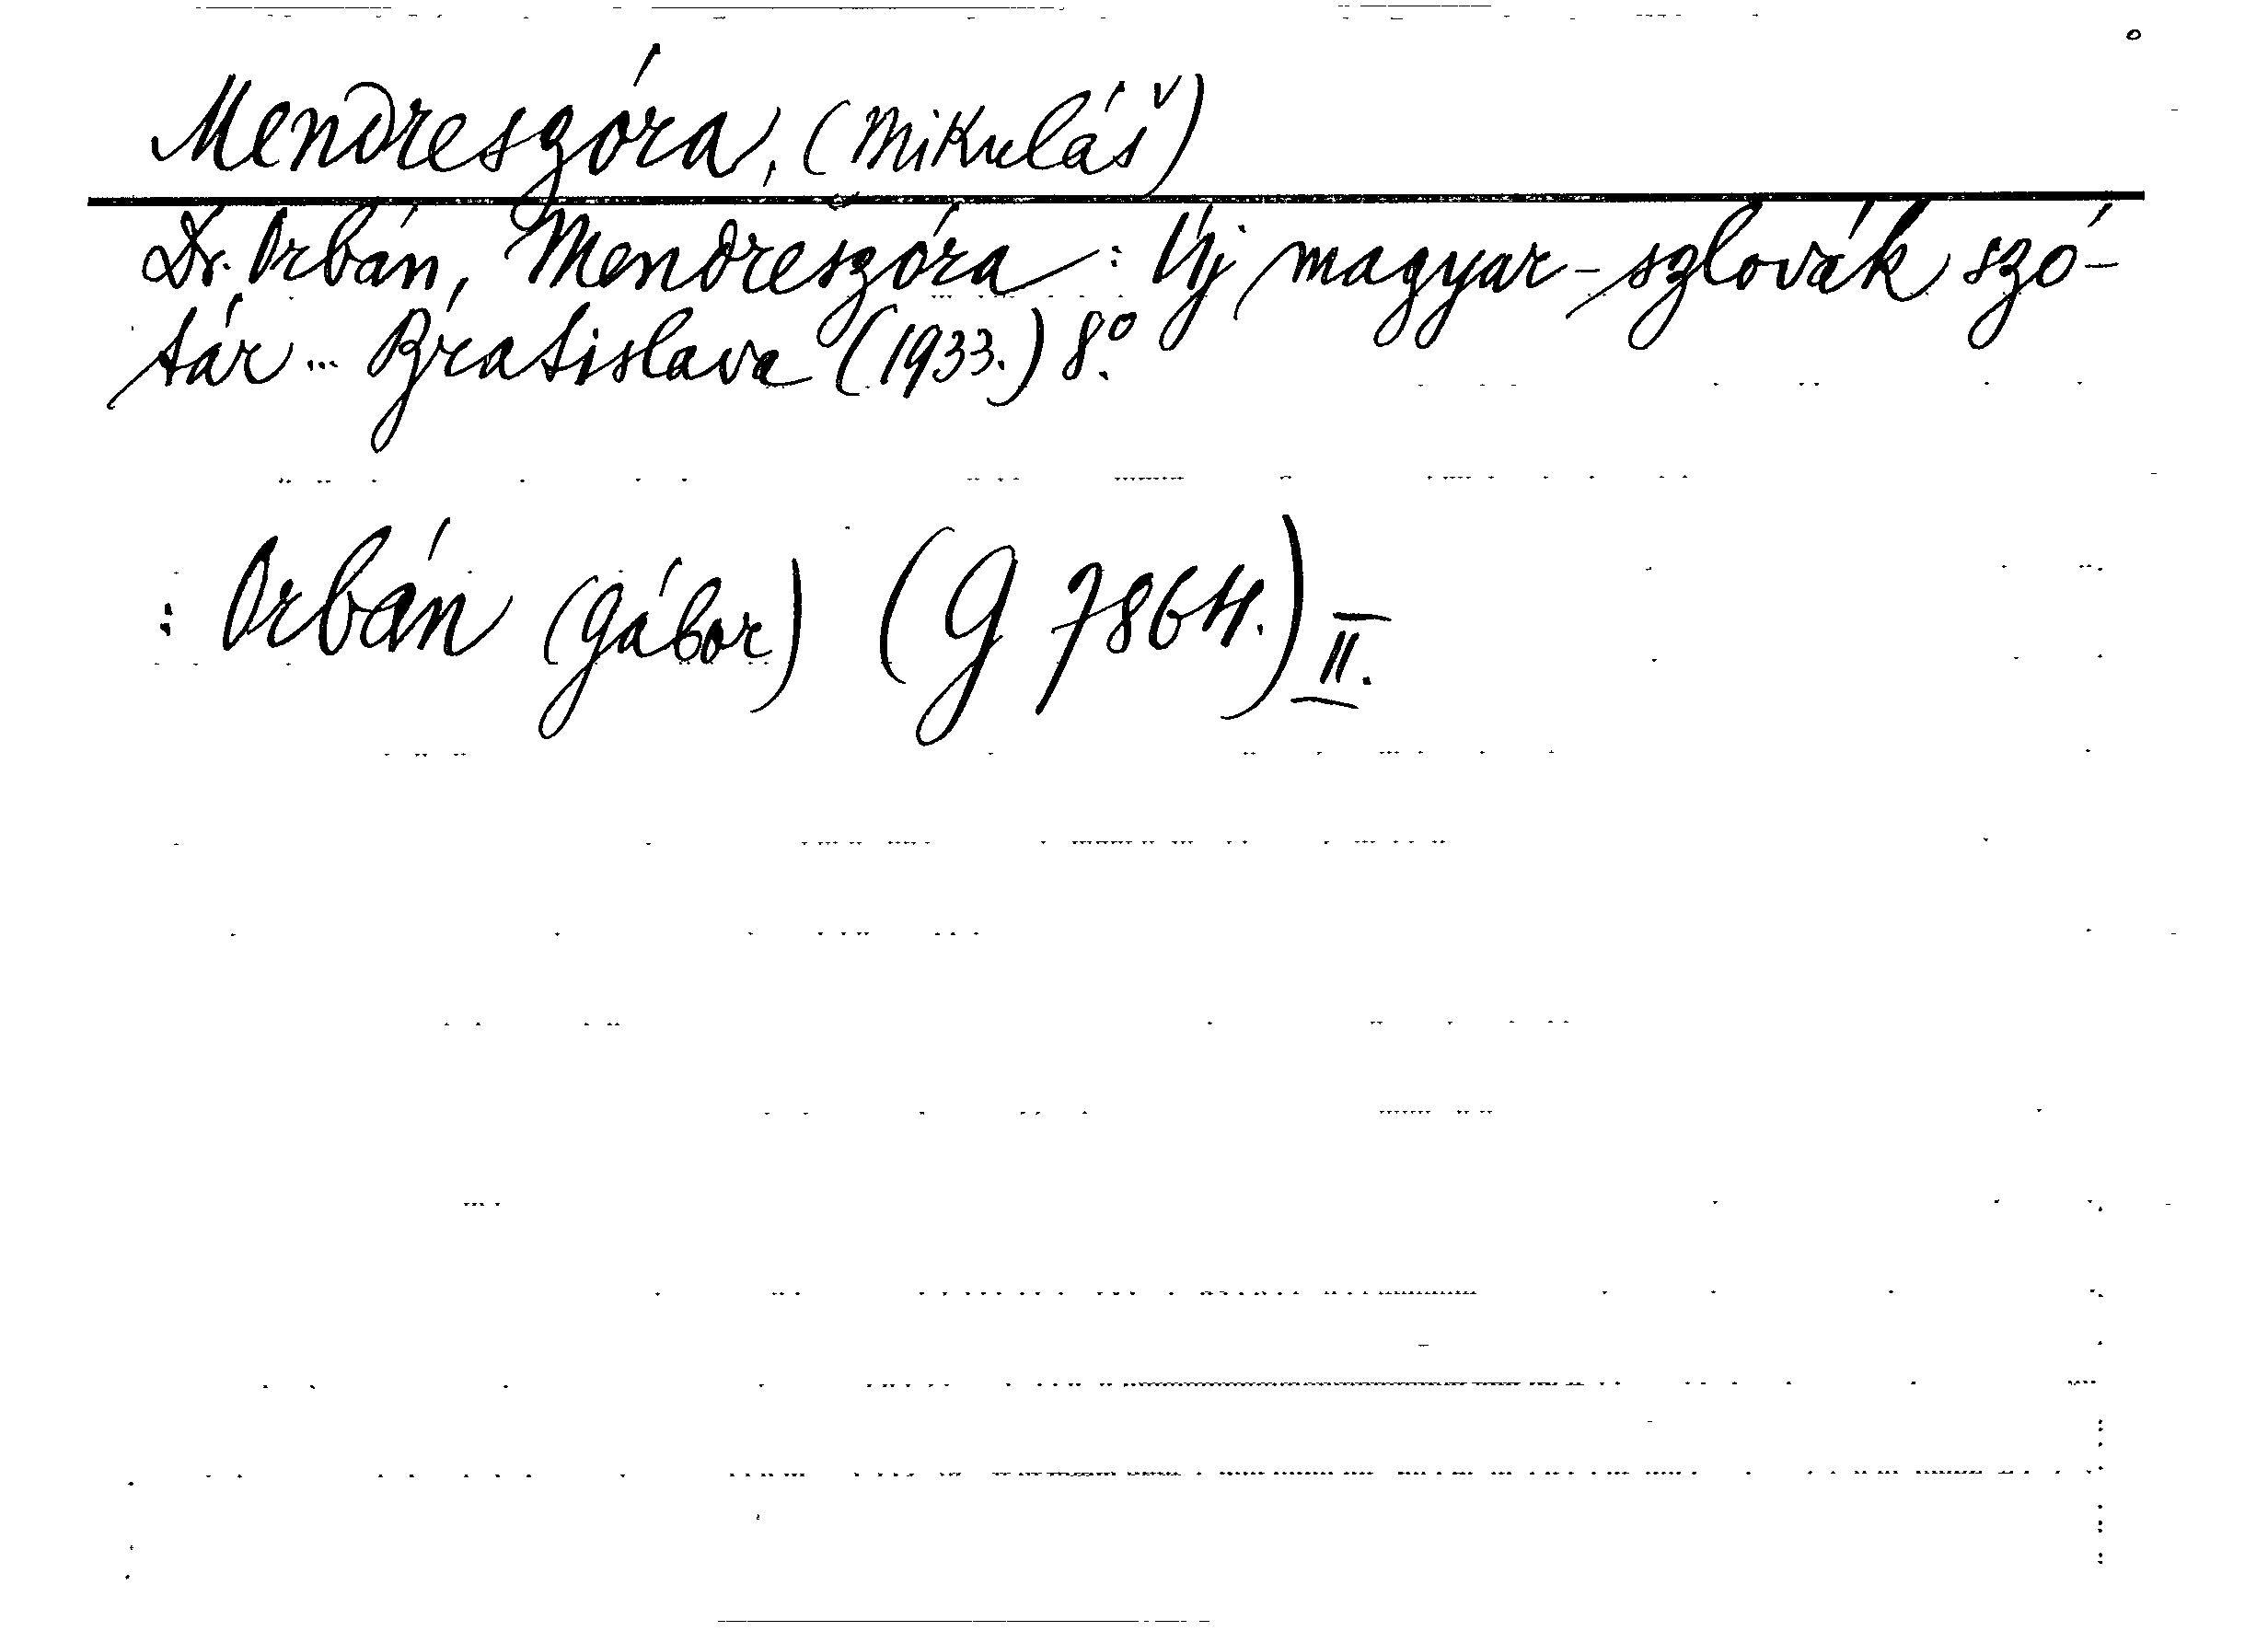 Mendreszóra, (Mikuláš)
Dr. Orbán, Mendreszóra : Új magyar-szlovák szó-
tár ... Bratislava (1933.) 8.º
: Orbán (Gábor) (G 7864.) II.